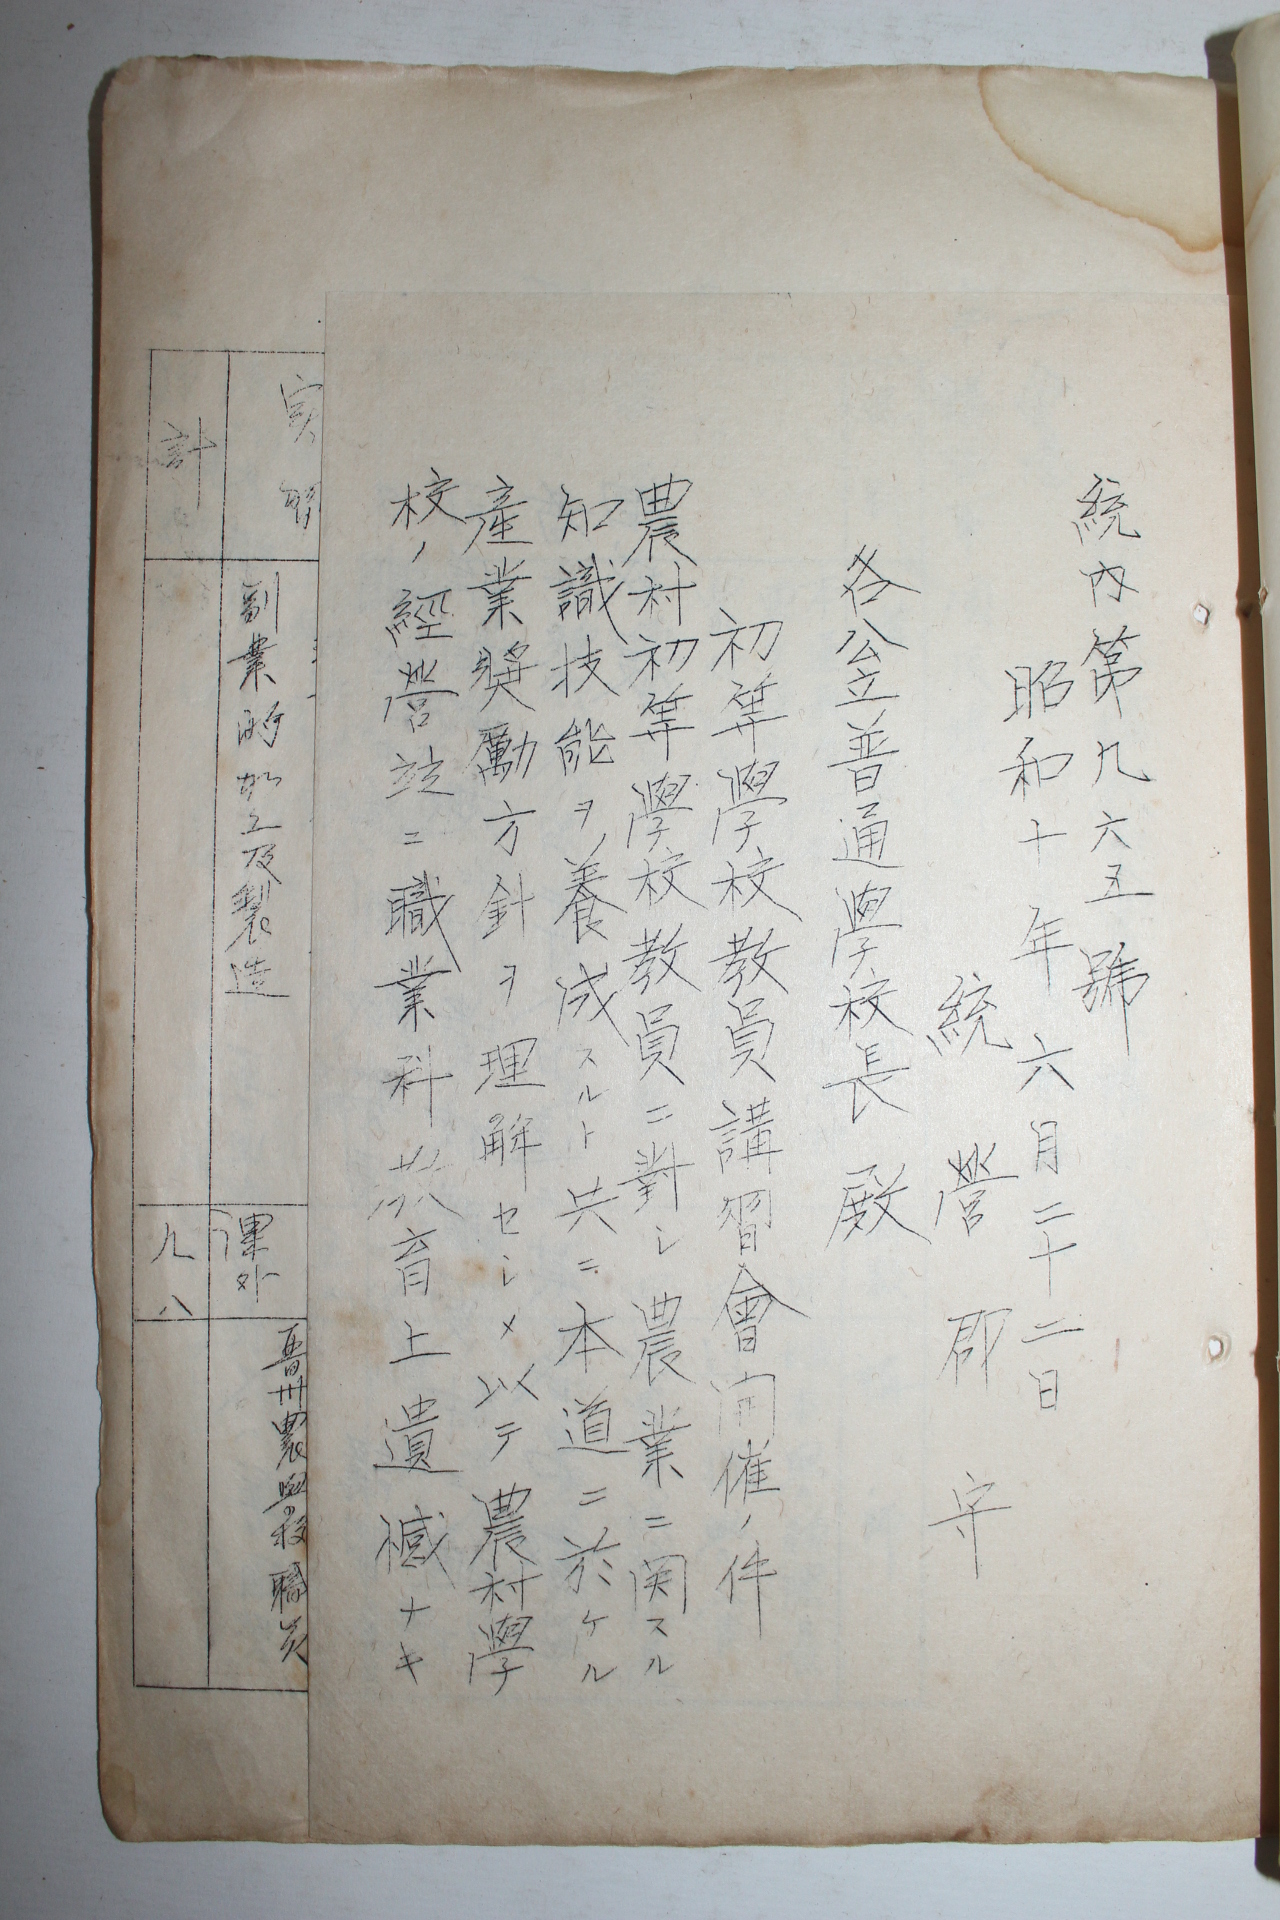 統内第九六五號
昭和十年六月二十二日
統營郡守
各公立普通學校長殿
初等學校教員講習會開催ノ件
農村初等學校教員ニ對シ農業ニ関スル
知識技能ヲ養成スルト共ニ本道ニ於ケル
産業奬勵方針ヲ理解セシメ以テ農村學
校ノ經營竝ニ職業科教育上遺憾ナキ
實習
副業的加工及製造
課外
晋州農學校職員
計
九八